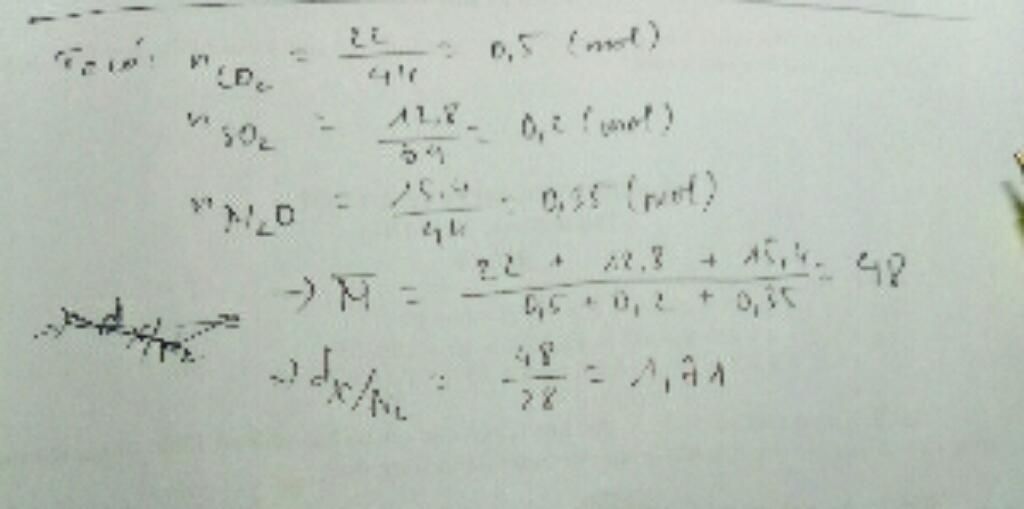 Ta có: n CO₂ = 22/44 = 0,5 (mol)
n SO₂ = 12,8/64 = 0,2 (mol)
n N₂O = 15,4/44 = 0,35 (mol)
→ M̅ = (22 + 12,8 + 15,4)/(0,5 + 0,2 + 0,35) = 48
→ d x/N₂ = 48/28 = 1,71